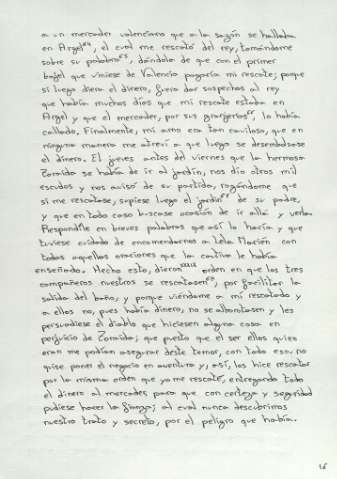 a un mercader valenciano que a la sazón se hallaba
en Argel, el cual me rescató del rey, tomándome
sobre su palabra, dándola de que con el primer
bajel que viniese de Valencia pagaría mi rescate; porque
si luego diera el dinero, fuera dar sospechas al rey
que había muchos días que mi rescate estaba en
Argel y que el mercader, por sus granjerías, lo había
callado. Finalmente, mi amo era tan caviloso, que en
ninguna manera me atreví a que luego se desembolsase
el dinero. El jueves antes del viernes que la hermosa
Zoraida se había de ir al jardín, nos dio otros mil
escudos y nos avisó de su partida, rogándome que
si me rescatase, supiese luego el jardín de su padre,
y que en todo caso buscase ocasión de ir allá y verla.
Respondíle en breves palabras que así lo haría y que
tuviese cuidado de encomendarnos a Lela Marién con
todas aquellas oraciones que la cautiva le había
enseñado. Hecho esto, dieron orden en que los tres
compañeros nuestros se rescatasen, por facilitar la
salida del baño, y porque viéndome a mí rescatado y
a ellos no, pues había dinero, no se alborotasen y les
persuadiese el diablo que hiciesen alguna cosa en
perjuicio de Zoraida; que puesto que el ser ellos quien
eran me podían asegurar deste temor, con todo eso, no
quise poner el negocio en aventura y, así, los hice rescatar
por la misma orden que yo me rescaté, entregando todo
el dinero al mercader para que con certeza y seguridad
pudiese hacer la fianza; al cual nunca descubrimos
nuestro trato y secreto, por el peligro que había.